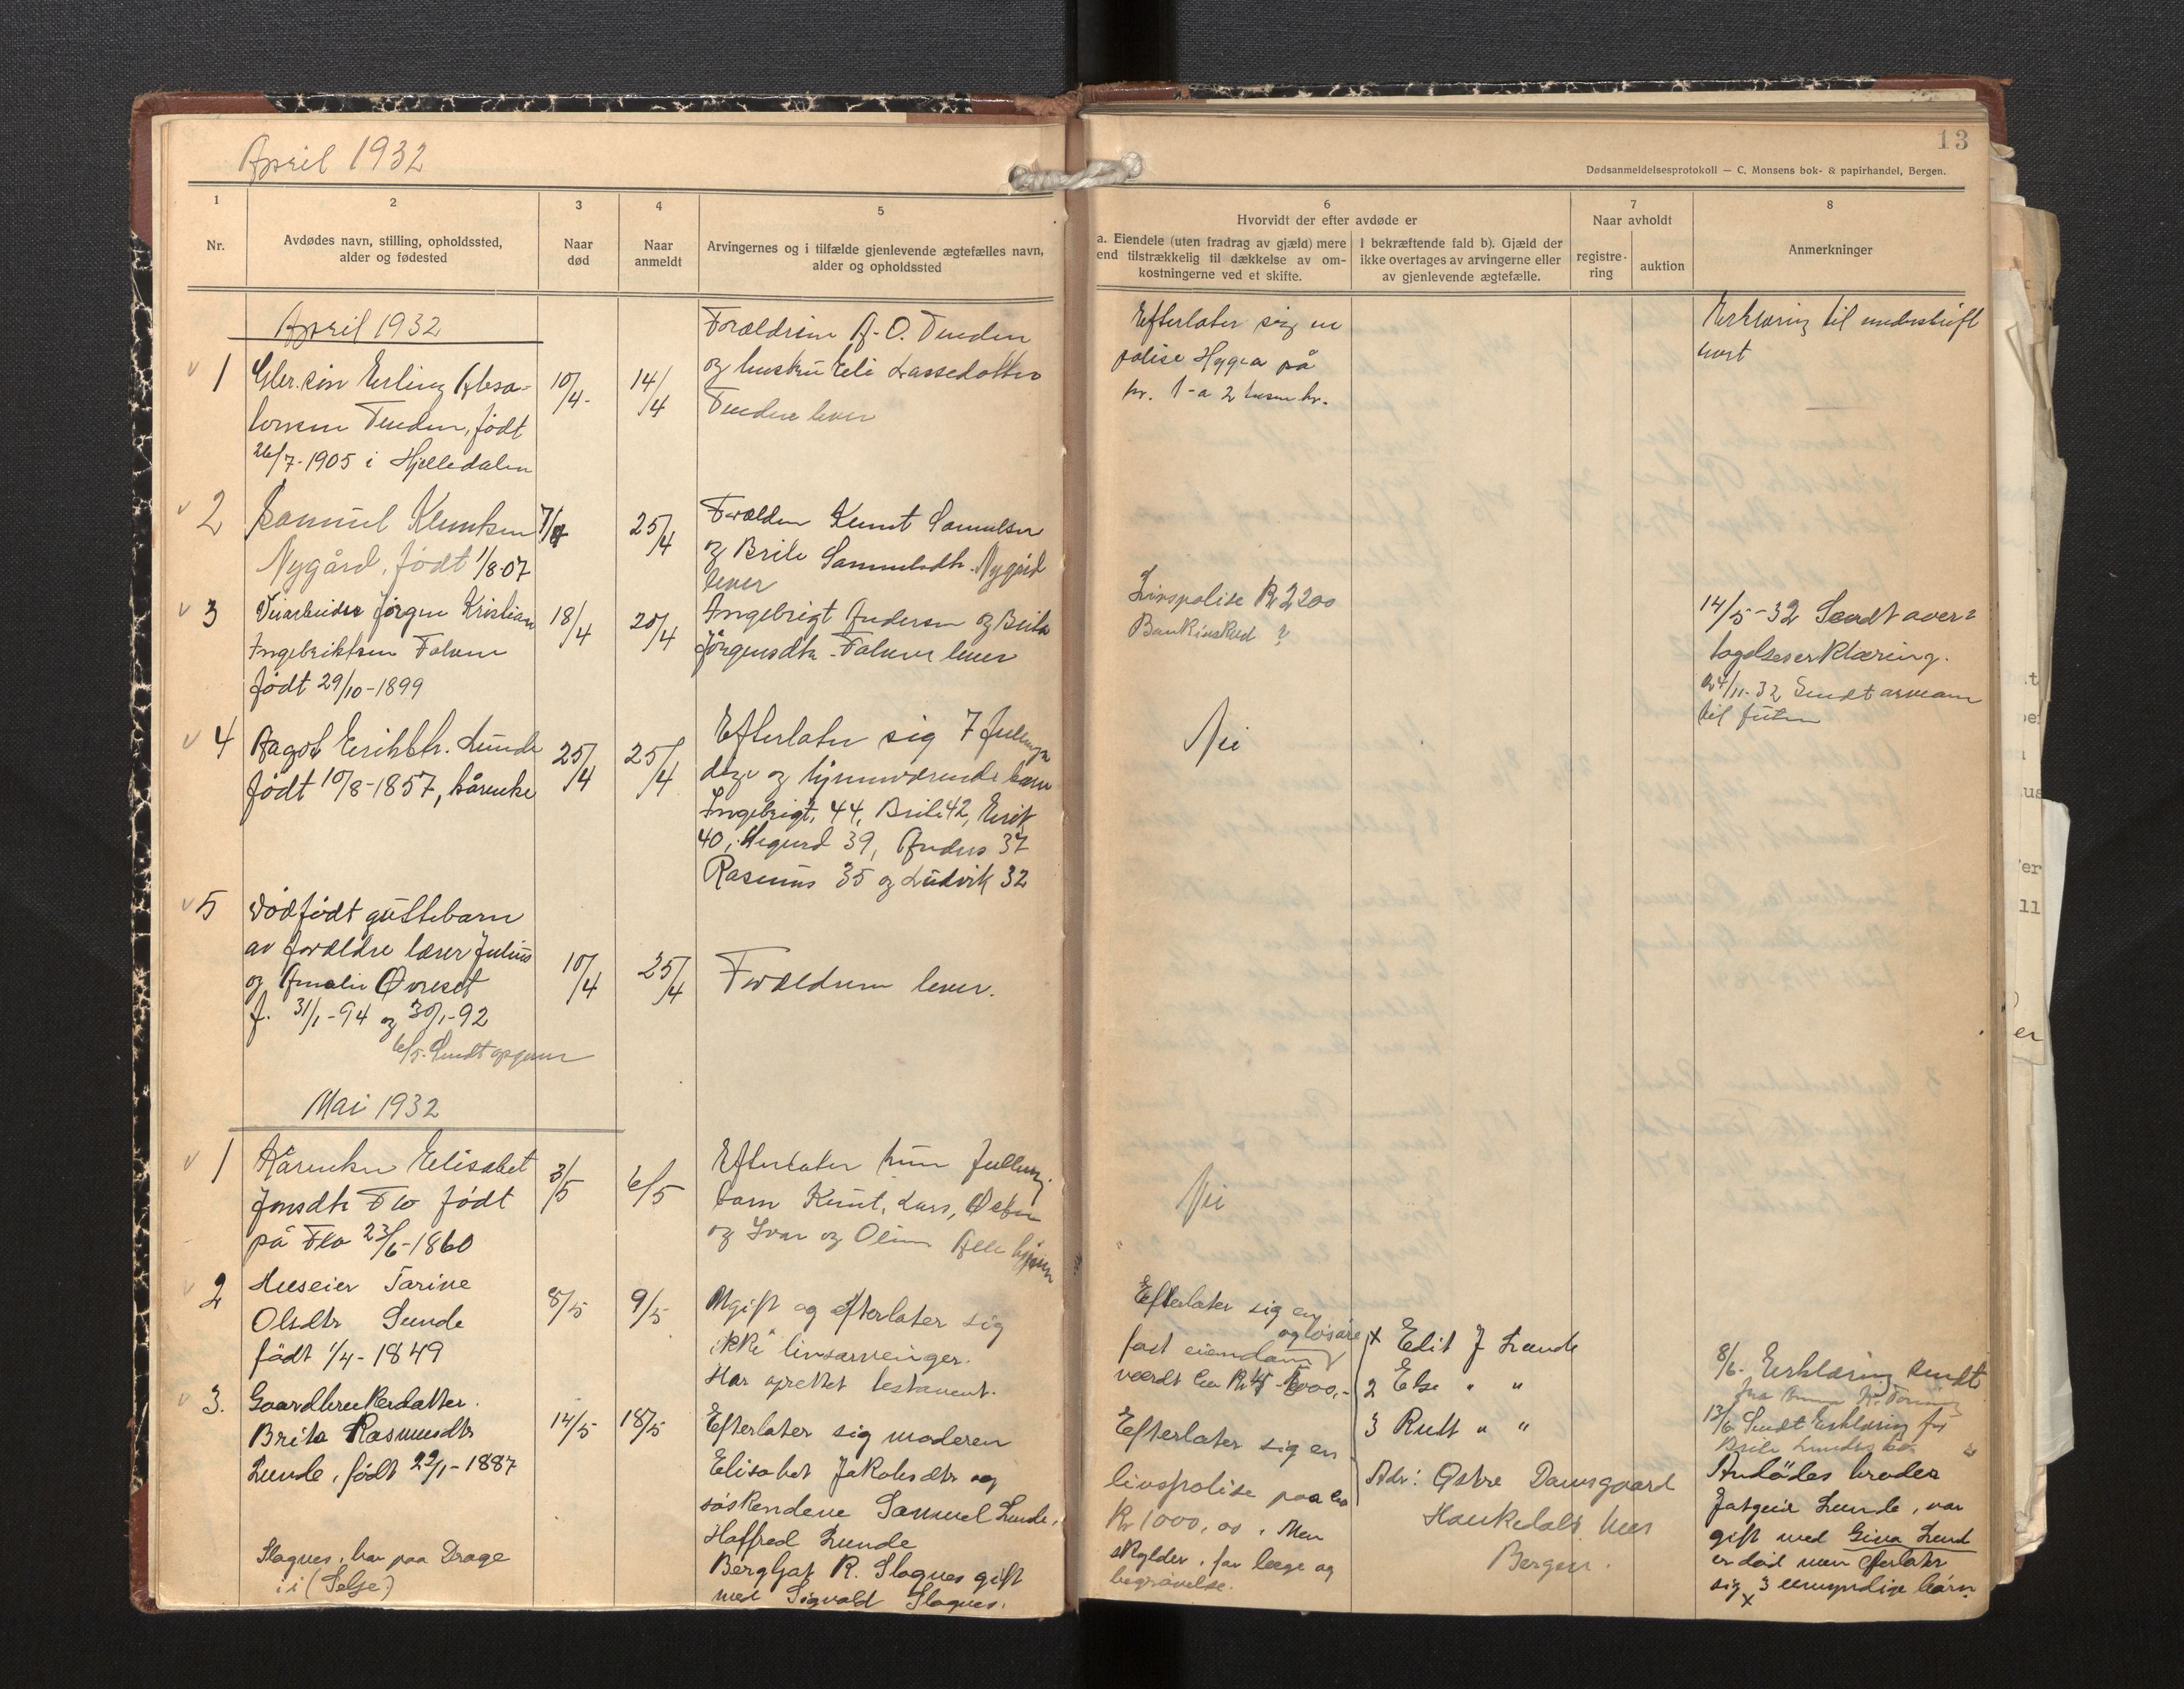 April 1932
13
Dødsanmeldelsesprotokoll — C. Monsens bok- & papirhandel, Bergen.
1
Nr.
2
Avdødes navn, stilling, opholdssted,
alder og fødested
3
Naar
død
4
Naar
anmeldt
5
Arvingernes og i tilfælde gjenlevende ægtefælles navn,
alder og opholdssted
6
Hvorvidt der efter avdøde er
a. Eiendele (uten fradrag av gjæld) mere
end tilstrækkelig til dækkelse av om-
kostningerne ved et skifte.
I bekræftende fald b). Gjæld der
ikke overtages av arvingerne eller
av gjenlevende ægtefælle.
7
Naar avholdt
registre-
ring
auktion
8
Anmerkninger
April 1932
1
sön Erling Absa-
lonsen Tenden, født
26/7-1905 i Hjelledalen
10/4-
14/4
Forældrene A. O. Tenden
og hustru Eli Lassedotter
Tenden lever
Efterlater sig en
polise Hygea på
kr. 1-a 2 tusen kr.
Erklæring til underskrift
2
Samuel Knutsen
Nygård, født 1/8-07
25/4
Forælden Knut Samuelsen
og Brite Samuelsdtr. Nygård
lever
3
Veiarbeider Jörgen Kristian
Ingebriktsen Folven
født 29/10-1899
18/4
20/4
Ingebrigt Andersen og Brita
Jörgensdtr. Folven lever
Livspolise Kr 2200
Bankinskud ?
14/5-32 Sendt over=
tagelseserklæring.
4/11-32 Sendt
til futen
4
Ragob Eriksdtr. Sunde
født 10/8-1857, kårenke
25/4
25/4
Efterlater sig 7 fullmyn
dige og hjemmværende barn
Ingebrigt, 44, Brite 42, Eirik
40, Sigurd 39, Anders 37
Rasmus 35 og Ludvik 32
Nei
5
dödfødt guttebarn
av forældre lærer Julius
og Amalie Øvreset
f. 31/1-94 og 30/1-92
6/5- Sendt
10/4
25/4
Forældrene lever.
Mai 1932
1
Kårenken Elisabet
Jonsdtr Flo født
på Flo 23/6-1860
3/5
6/5
Efterlater kun fullmy.
barn Knut, Lars,
og Ivar og Olina Alle
Nei
2
Huseier Tarine
Olsdtr Sunde
født 1/4-1849
8/5
9/5
Ugift og efterlater sig
ikke livsarvinger.
Har oprettet testament.
Efterlater sig en
og lösöre
fast eiendom
værdt ca
8/6- Erklæring sendt
3.
Gaardbrukerdatter.
Brita Rasmusdtr
Lunde, født 22/1-1887
14/5
18/5
Efterlater sig moderen
Elisabet Jakobsdtr og
söskendene Samuel Lunde,
Haffred Lunde
Bergljot R. Slagnes gift
med Sigvald Slagnes.
Slagnes, bor paa Drage
i (Selje)
Efterlater sig en
livspolise paa ca
Kr 1000,00. Men
skylder for læge og
begravelse.
x Edit J Lunde
2 Else " "
3 Rutt " "
Adr: Østre Damsgaard
Haukedals hus
Bergen.
13/6 Sendt Erklæring for
Brite Lundes bo
Avdödes broder
Jatgeir Lunde, var
gift med Gina Lund
er död men efterlater
sig 3 umyndige barn.
x